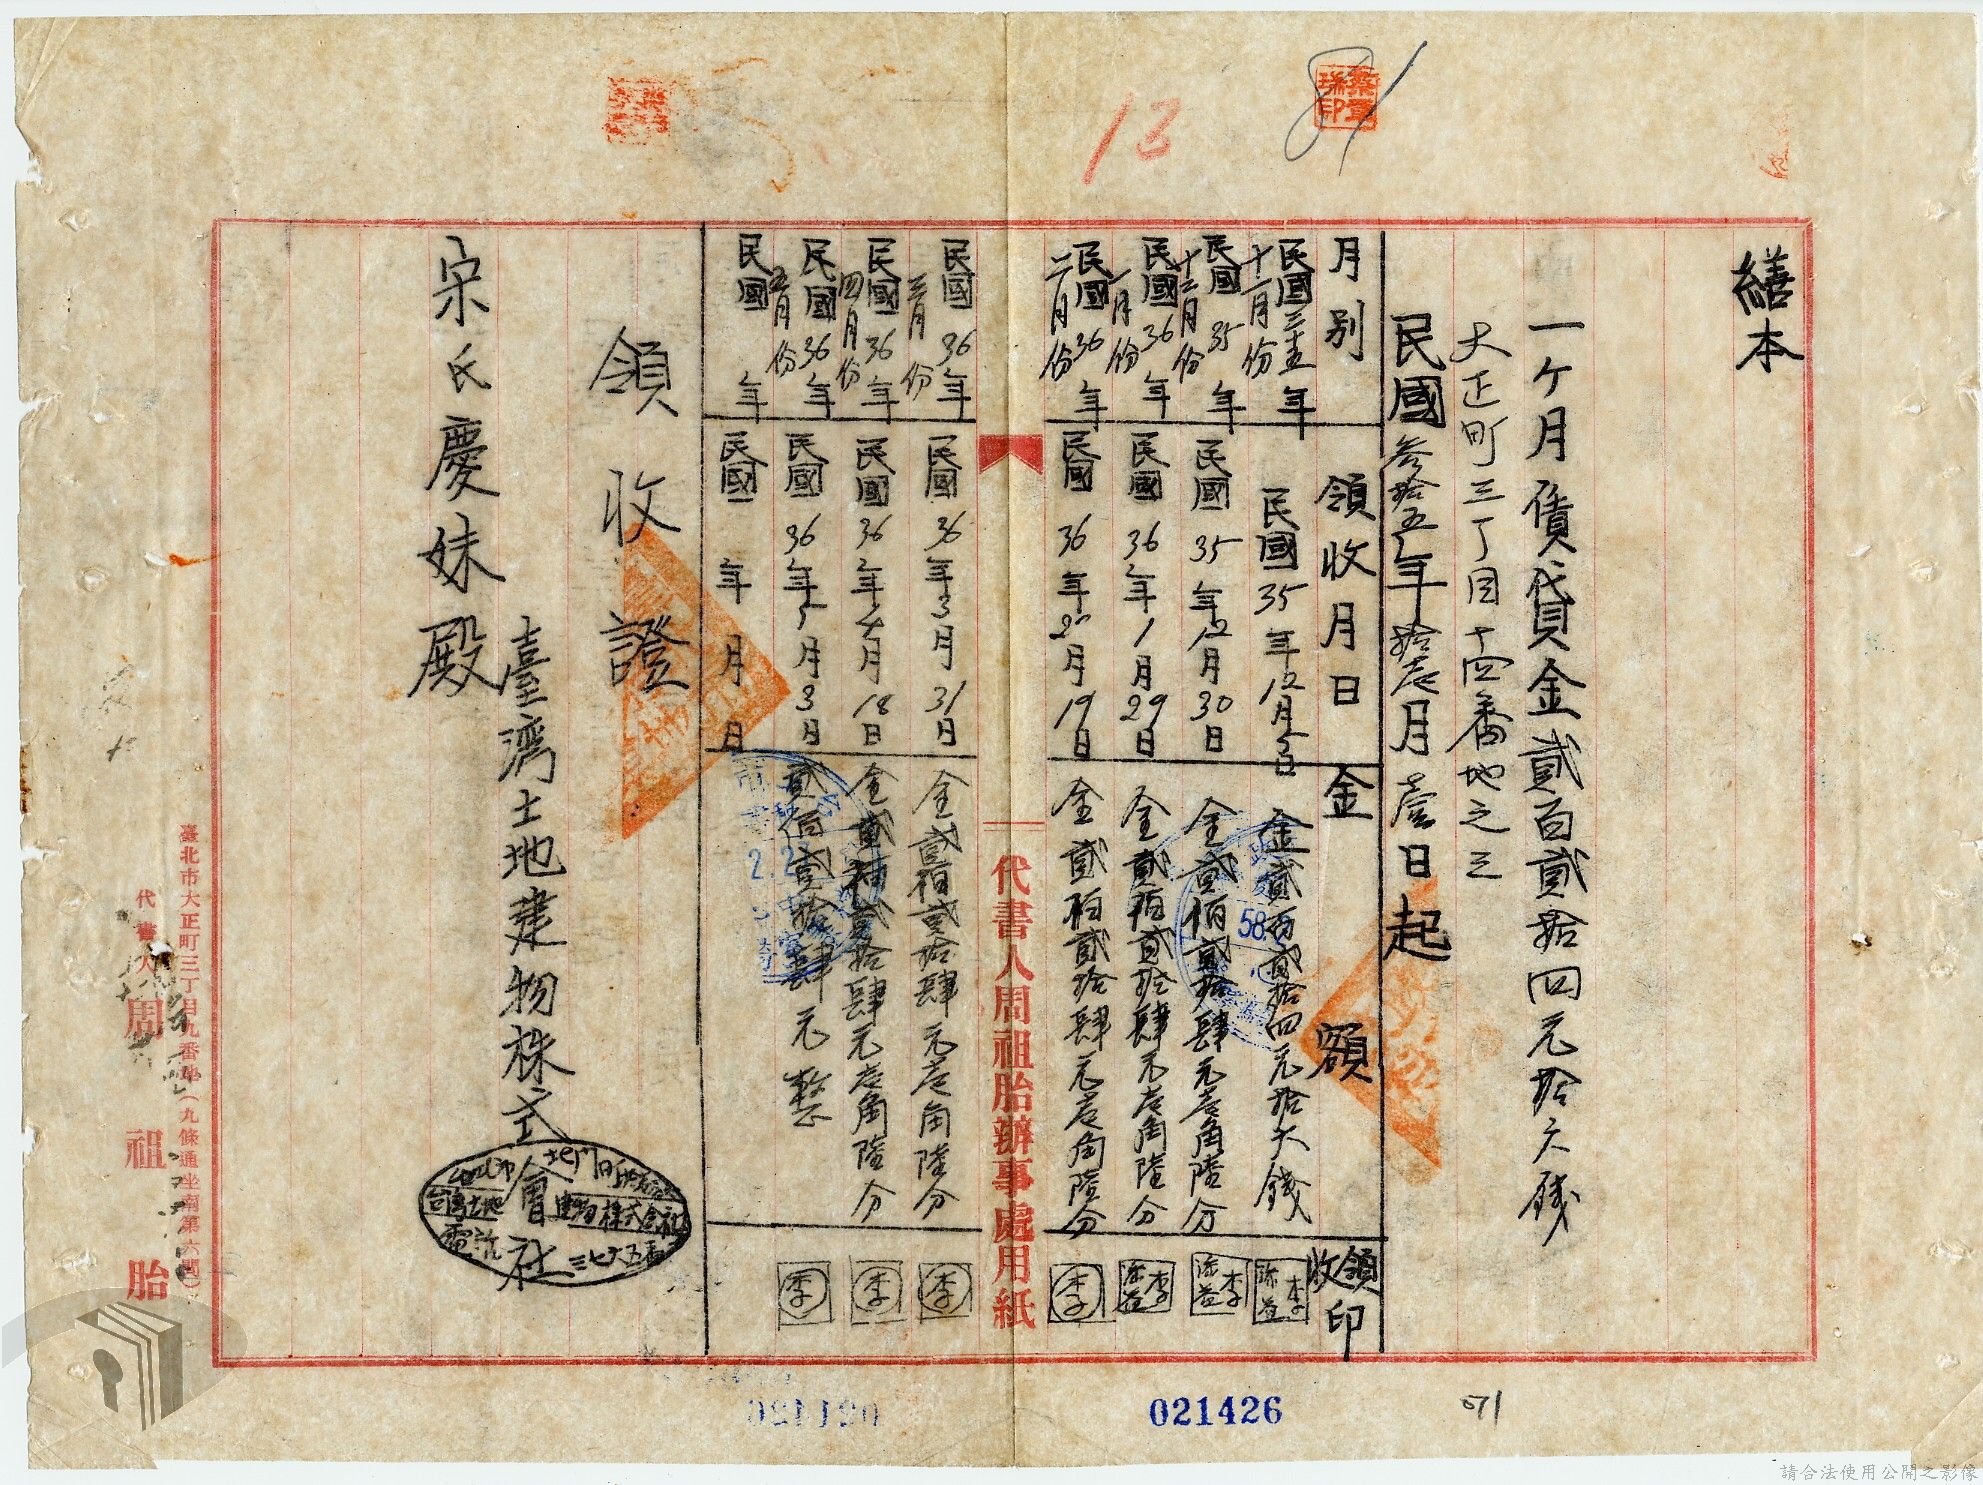 繕本
一ケ月賃貸金貳百貳拾四元拾六錢
大正町三丁目十四番地之三
民國叁拾五年拾壱月壹日起
月別 領收月日 金額 領收印
民國三十五年十一月份 民國35年12月5日 金貳百貳拾四元拾六錢
民國35年十二月份 民國35年12月30日 金貳佰貳拾肆元壱角陸分
民國36年一月份 民國36年1月29日 金貳佰貳拾肆元壱角陸分
民國36年二月份 民國36年2月19日 金貳佰貳拾肆元壱角陸分 李
代書人周祖胎辦事處用紙
民國36年三月份 民國36年3月31日 金貳佰貳拾肆元壱角陸分 李
民國36年四月份 民國36年4月18日 金貳佰貳拾肆元壱角陸分 李
民國36年五月份 民國36年5月3日 貳佰貳拾肆元整 李
民國 年 民國 年 月 日
領收證
臺灣土地建物株式會社
宋氏慶妹殿
臺北市大正町三丁目九番地(九條通坐南第六間)
代書人 周祖胎
13
81
58
021426
571
請合法使用公開之影像